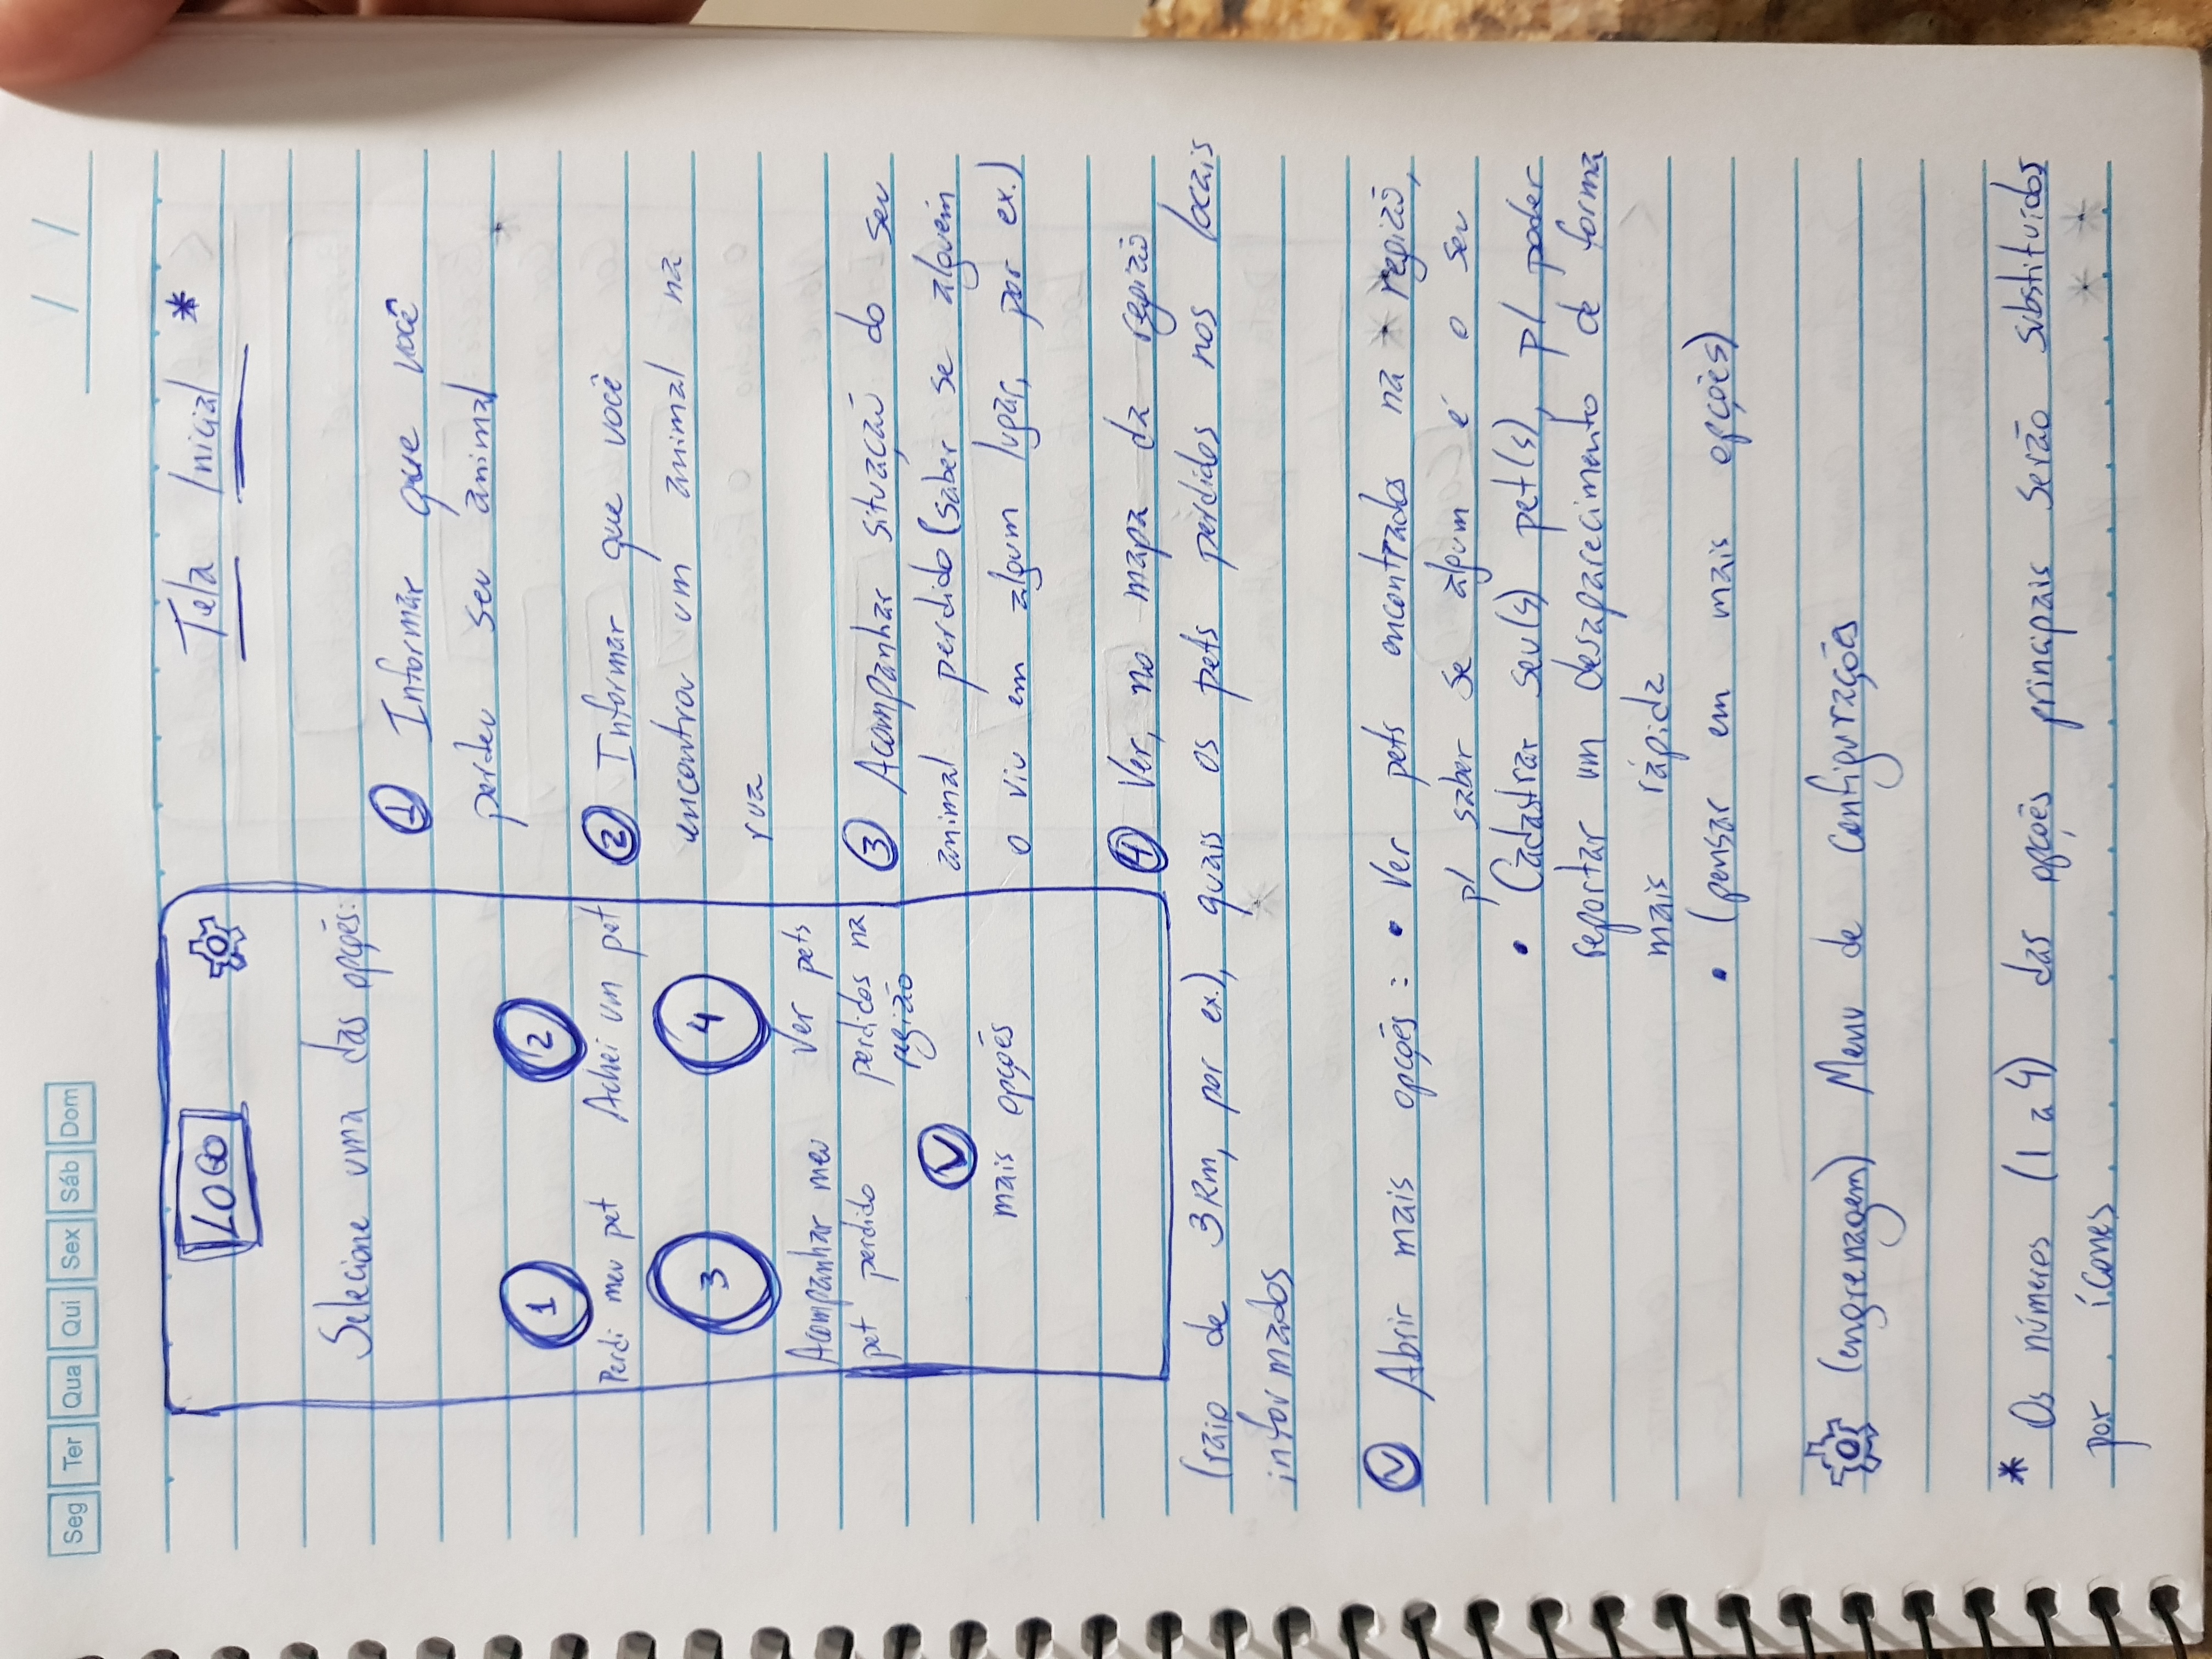 Seg Ter Qua Qui Sex Sáb Dom
/ /
LOGO
Selecione uma das opções:
1 2
Perdi meu pet Achei um pet
3 4
Acompanhar meu
pet perdido
Ver pets
perdidos na
região
V
mais opções
Tela Inicial *
1 Informar que você
perdeu seu animal
2 Informar que você
encontrou um animal na
rua
3 Acompanhar situação do seu
animal perdido (saber se alguém
o viu em algum lugar, por ex.)
4 Ver, no mapa da região
(raio de 3Km, por ex.), quais os pets perdidos nos locais
informados
V Abrir mais opções: • Ver pets encontrados na região,
p/ saber se algum é o seu
• Cadastrar seu(s) pet(s), p/ poder
reportar um desaparecimento de forma
mais rápida
• (pensar em mais opções)
(engrenagem) Menu de configurações
* Os números (1 a 4) das opções principais serão substituídos
por ícones